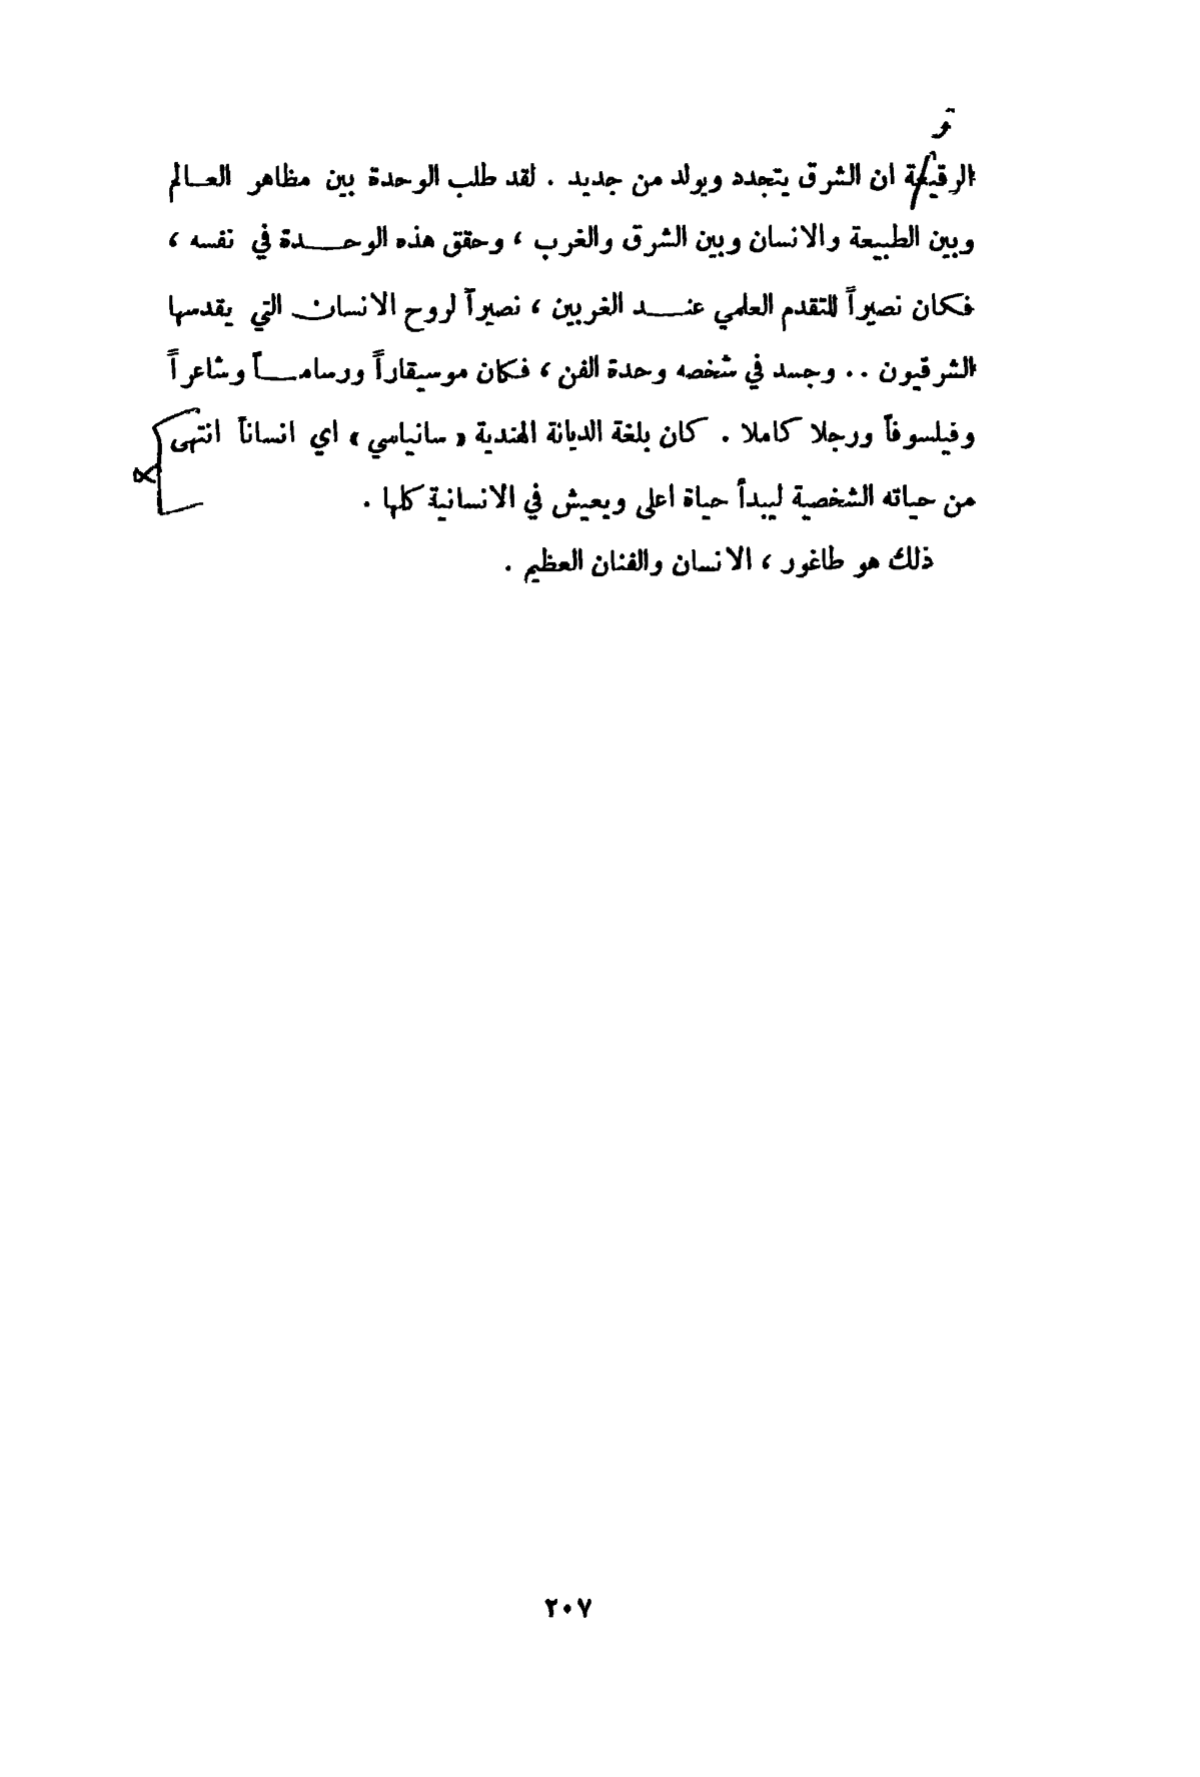 الرقيقة ان الشرق يتجدد ويولد من جديد . لقد طلب الوحدة بين مظاهر العالم
وبين الطبيعة والانسان وبين الشرق والغرب ، وحقق هذه الوحدة في نفسه ،
فكان نصيراً للتقدم العلمي عند الغربين ، نصيراً لروح الانسان التي يقدسها
الشرقيون .. وجسد في شخصه وحدة الفن ، فكان موسيقاراً ورساماً وشاعراً
وفيلسوفاً ورجلا كاملا . كان بلغة الديانة الهندية « سانياسي » اي انساناً انتهى
من حياته الشخصية ليبدأ حياة اعلى ويعيش في الانسانية كلها .
ذلك هو طاغور ، الانسان والفنان العظيم .
٢٠٧